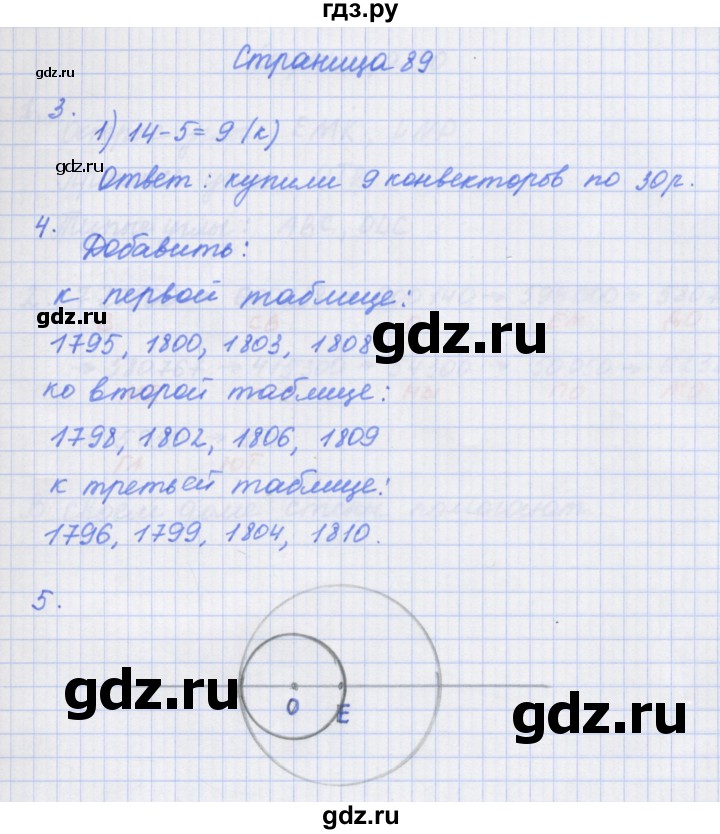 гдз.ру
Страница 89
gdz.ru
3.
1) 14-5=9 (к)
gdz.ru
Ответ: купили 9 конвекторов по 30р.
4.
Добавить:
к первой таблице:
gdz.ru
1795, 1800, 1803, 1808
ко второй таблице:
1798, 1802, 1806, 1809
к третьей таблице:
1796, 1799, 1804, 1810.
5.
gdz.ru
gdz.ru
О Е
gdz.ru